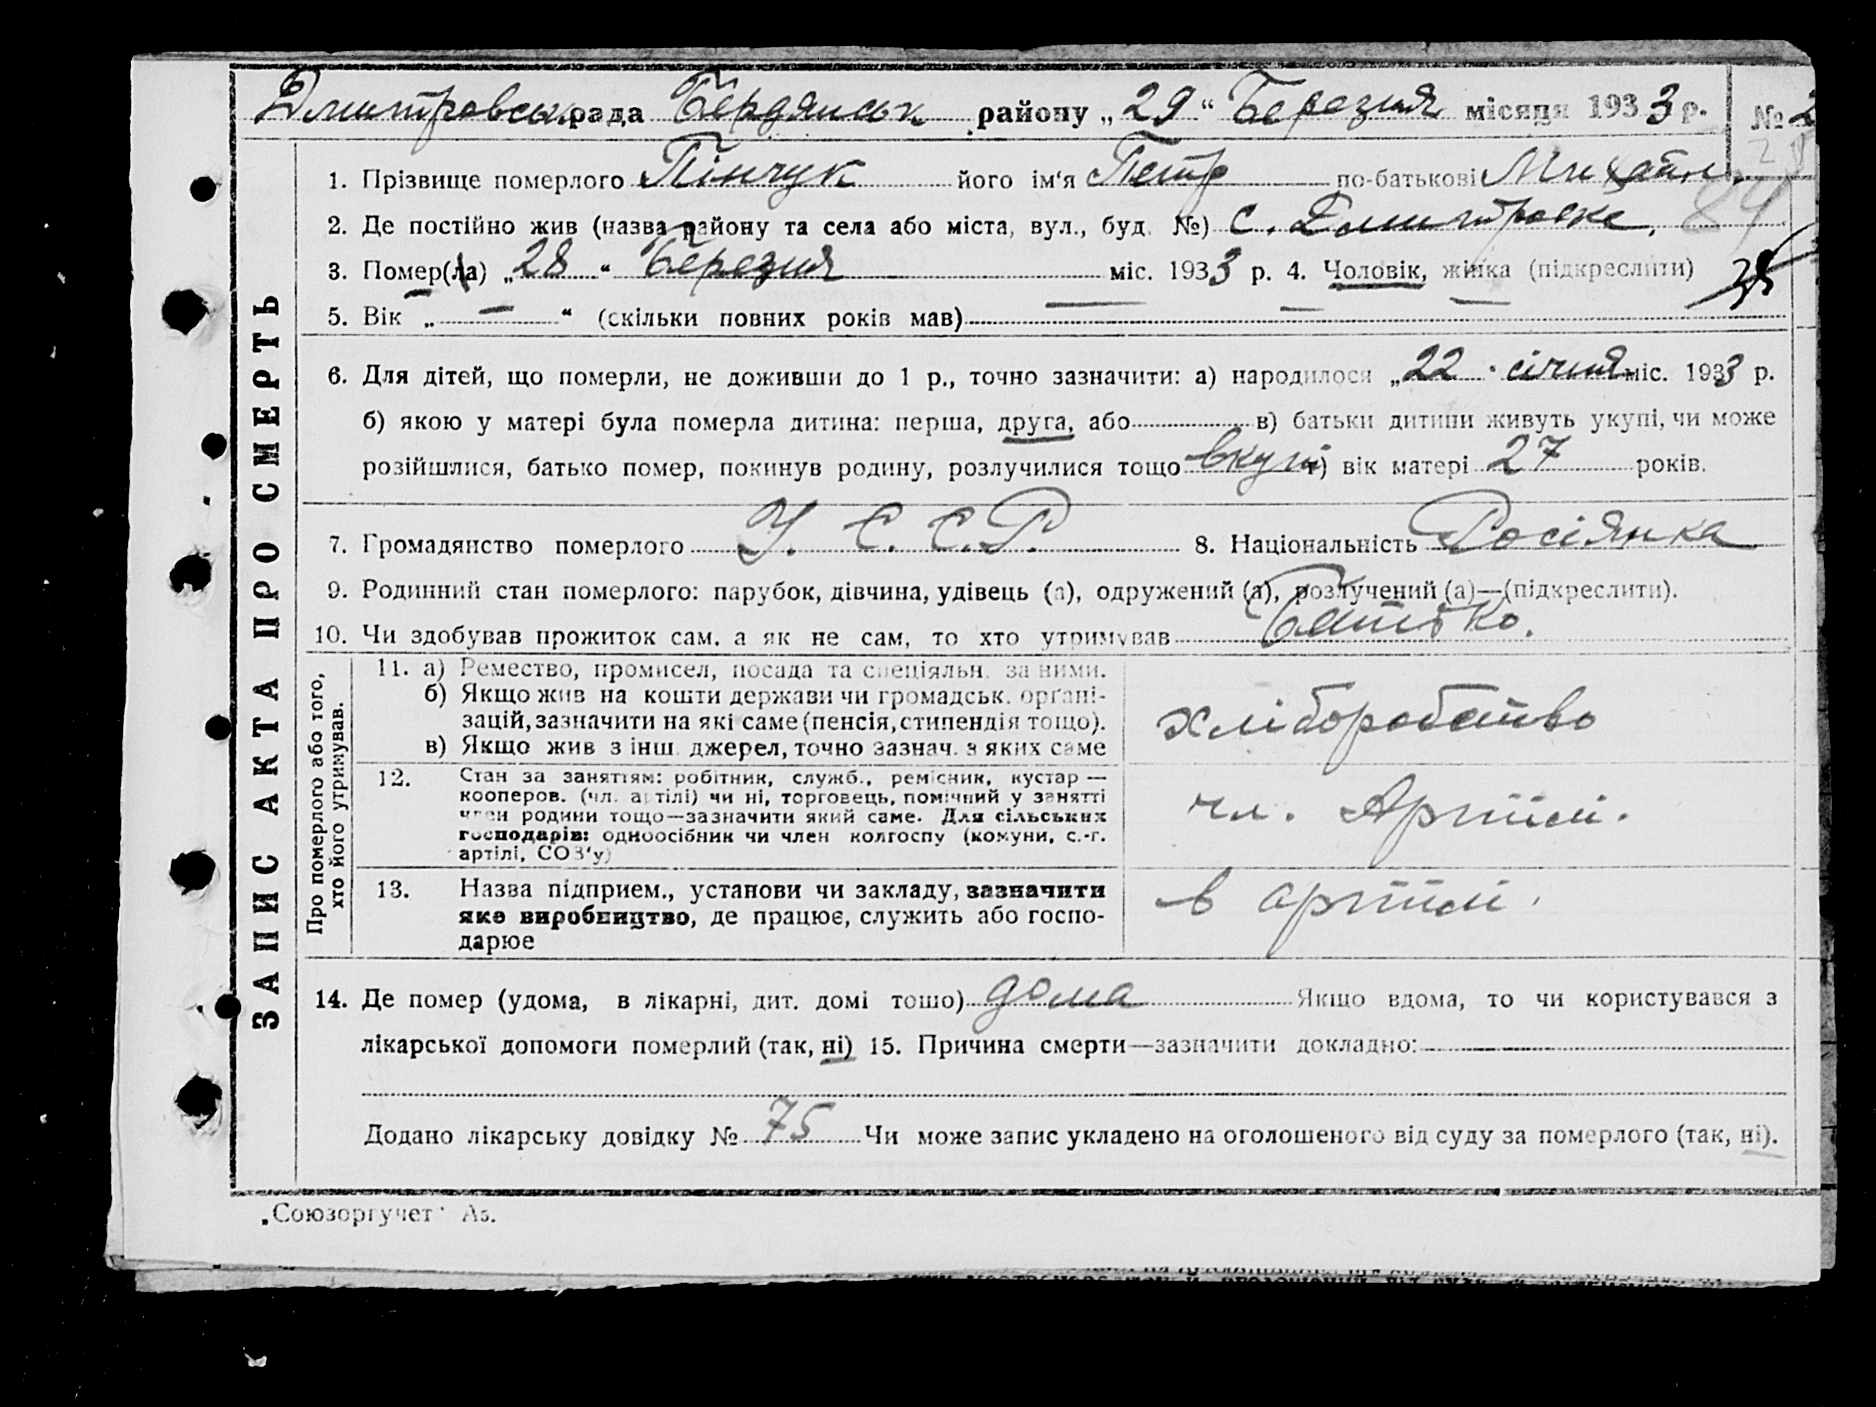 Дмитровськ рада Бердянськ району „29“ Березня місяця 1933 р. №
1. Прізвище померлого Пінчук його ім‘я Петр по-батькові Михайл.
2. Де постійно жив (назва району та села або міста, вул., буд. №) с. Дмитровка. 84
3. Помер(ла) „28“ Березня міс. 1933 р. 4. Чоловік, жінка (підкреслити)
5. Вік „ — “ (скільки повних років мав) — —
6. Для дітей, що померли, не доживши до 1 р., точно зазначити: а) народилося „22 · січня міс. 1933 р.
б) якою у матері була померла дитина: перша, друга, або в) батьки дитини живуть укупі, чи може
розійшлися, батько помер, покинув родину, розлучилися тощо вкупі г) вік матері 27 років.
7. Громадянство померлого У. С. С. Р. 8. Національність Росіянка
9. Родинний стан померлого: парубок, дівчина, удівець (а), одружений (а), розлучений (а)—(підкреслити).
10. Чи здобував прожиток сам, а як не сам, то хто утримував Батько.
ЗАПИС АКТА ПРО СМЕРТЬ
Про померлого або того,
хто його утримував.
11. а) Ремество, промисел, посада та спеціяльн. за ними.
б) Якщо жив на кошти держави чи громадськ. органі-
зацій, зазначити на які саме (пенсія, стипендія тощо).
в) Якщо жив з інш. джерел, точно зазнач. з яких саме
хліборобство
12. Стан за заняттям: робітник, служб., ремісник, кустар —
кооперов. (чл. артілі) чи ні, торговець, помічний у занятті
член родини тощо—зазначити який саме. Для сільських
господарів: одноосібник чи член колгоспу (комуни, с.-г.
артілі, СОЗ'у)
чл. Артілі.
13. Назва підприєм., установи чи закладу, зазначити
яке виробництво, де працює, служить або госпо-
дарює
в артілі.
14. Де помер (удома, в лікарні, дит. домі тощо) дома Якщо вдома, то чи користувався з
лікарської допомоги померлий (так, ні) 15. Причина смерти—зазначити докладно:
Додано лікарську довідку № 75 Чи може запис укладено на оголошеного від суду за померлого (так, ні).
„Союзоргучет“ Аз.